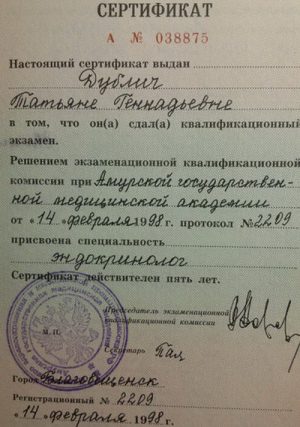 СЕРТИФИКАТ
А № 038875
Настоящий сертификат выдан
Дублич
Татьяне Геннадьевне
в том, что он(а) сдал(а) квалификационный
экзамен.
Решением экзаменационной квалификационной
комиссии при Амурской государствен-
ной медицинской академии
от «14» февраля 1998 г. протокол № 2209
присвоена специальность
эндокринолог
Сертификат действителен пять лет.
Председатель экзаменационной
квалификационной комиссии
М. П.
Секретарь
Город Благовещенск
Регистрационный № 2209
«14» февраля 1998 г.